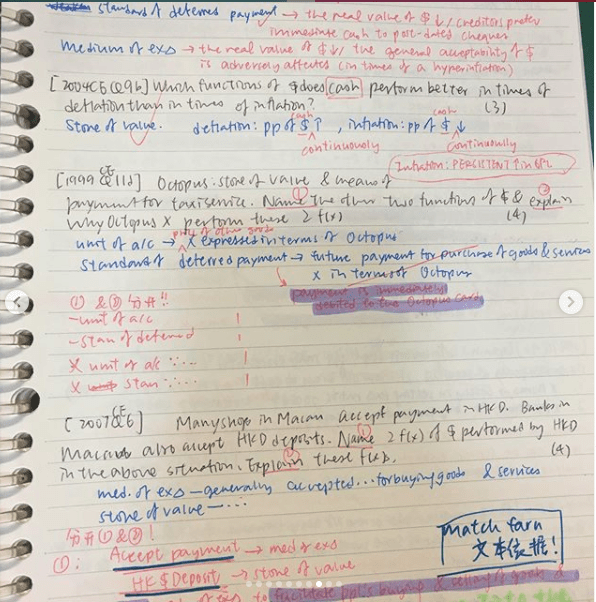 standard of deferred payment → the real value of $ ↓ / creditors prefer
immediate cash to post-dated cheques
Medium of exΔ → the real value of $ ↓ / the general acceptability of $
is adversely affected (in times of a hyperinflation)
[2004CE Q9b] Which functions of $ does cash perform better in times of
deflation than in times of inflation? (3)
Store of value. deflation: pp of $ ↑, inflation: pp of $ ↓
cash cash
continuously continuously
Inflation: PERSISTENT ↑ in GPL
[1999 CE Q11d] Octopus: store of value & means of
payment for taxi service. Name ① the other two functions of $ & explain ②
why Octopus X perform these 2 f(x) (4)
unit of a/c → price of other goods X expressed in terms of Octopus
Standard of deferred payment → future payment for purchase of goods & services
X in terms of Octopus
payment is immediately
debited to the Octopus card
① & ② 分开!!
- unit of a/c 1
- stan of deferred 1
X unit of a/c ∵... 1
X stan ∵... 1
[2007 CE Q6] Many shops in Macau accept payment in HKD. Banks in
Macau also accept HKD deposits. Name ① 2 f(x) of $ performed by HKD
in the above situation. Explain ② these f(x). (4)
med. of exΔ — generally accepted... for buying goods & services
store of value — ...
分开 ① & ②!
match farn
文本依据!
①: Accept payment → med of exΔ
HK$ Deposit → store of value
of exΔ to facilitate ppl's buying & selling of goods &